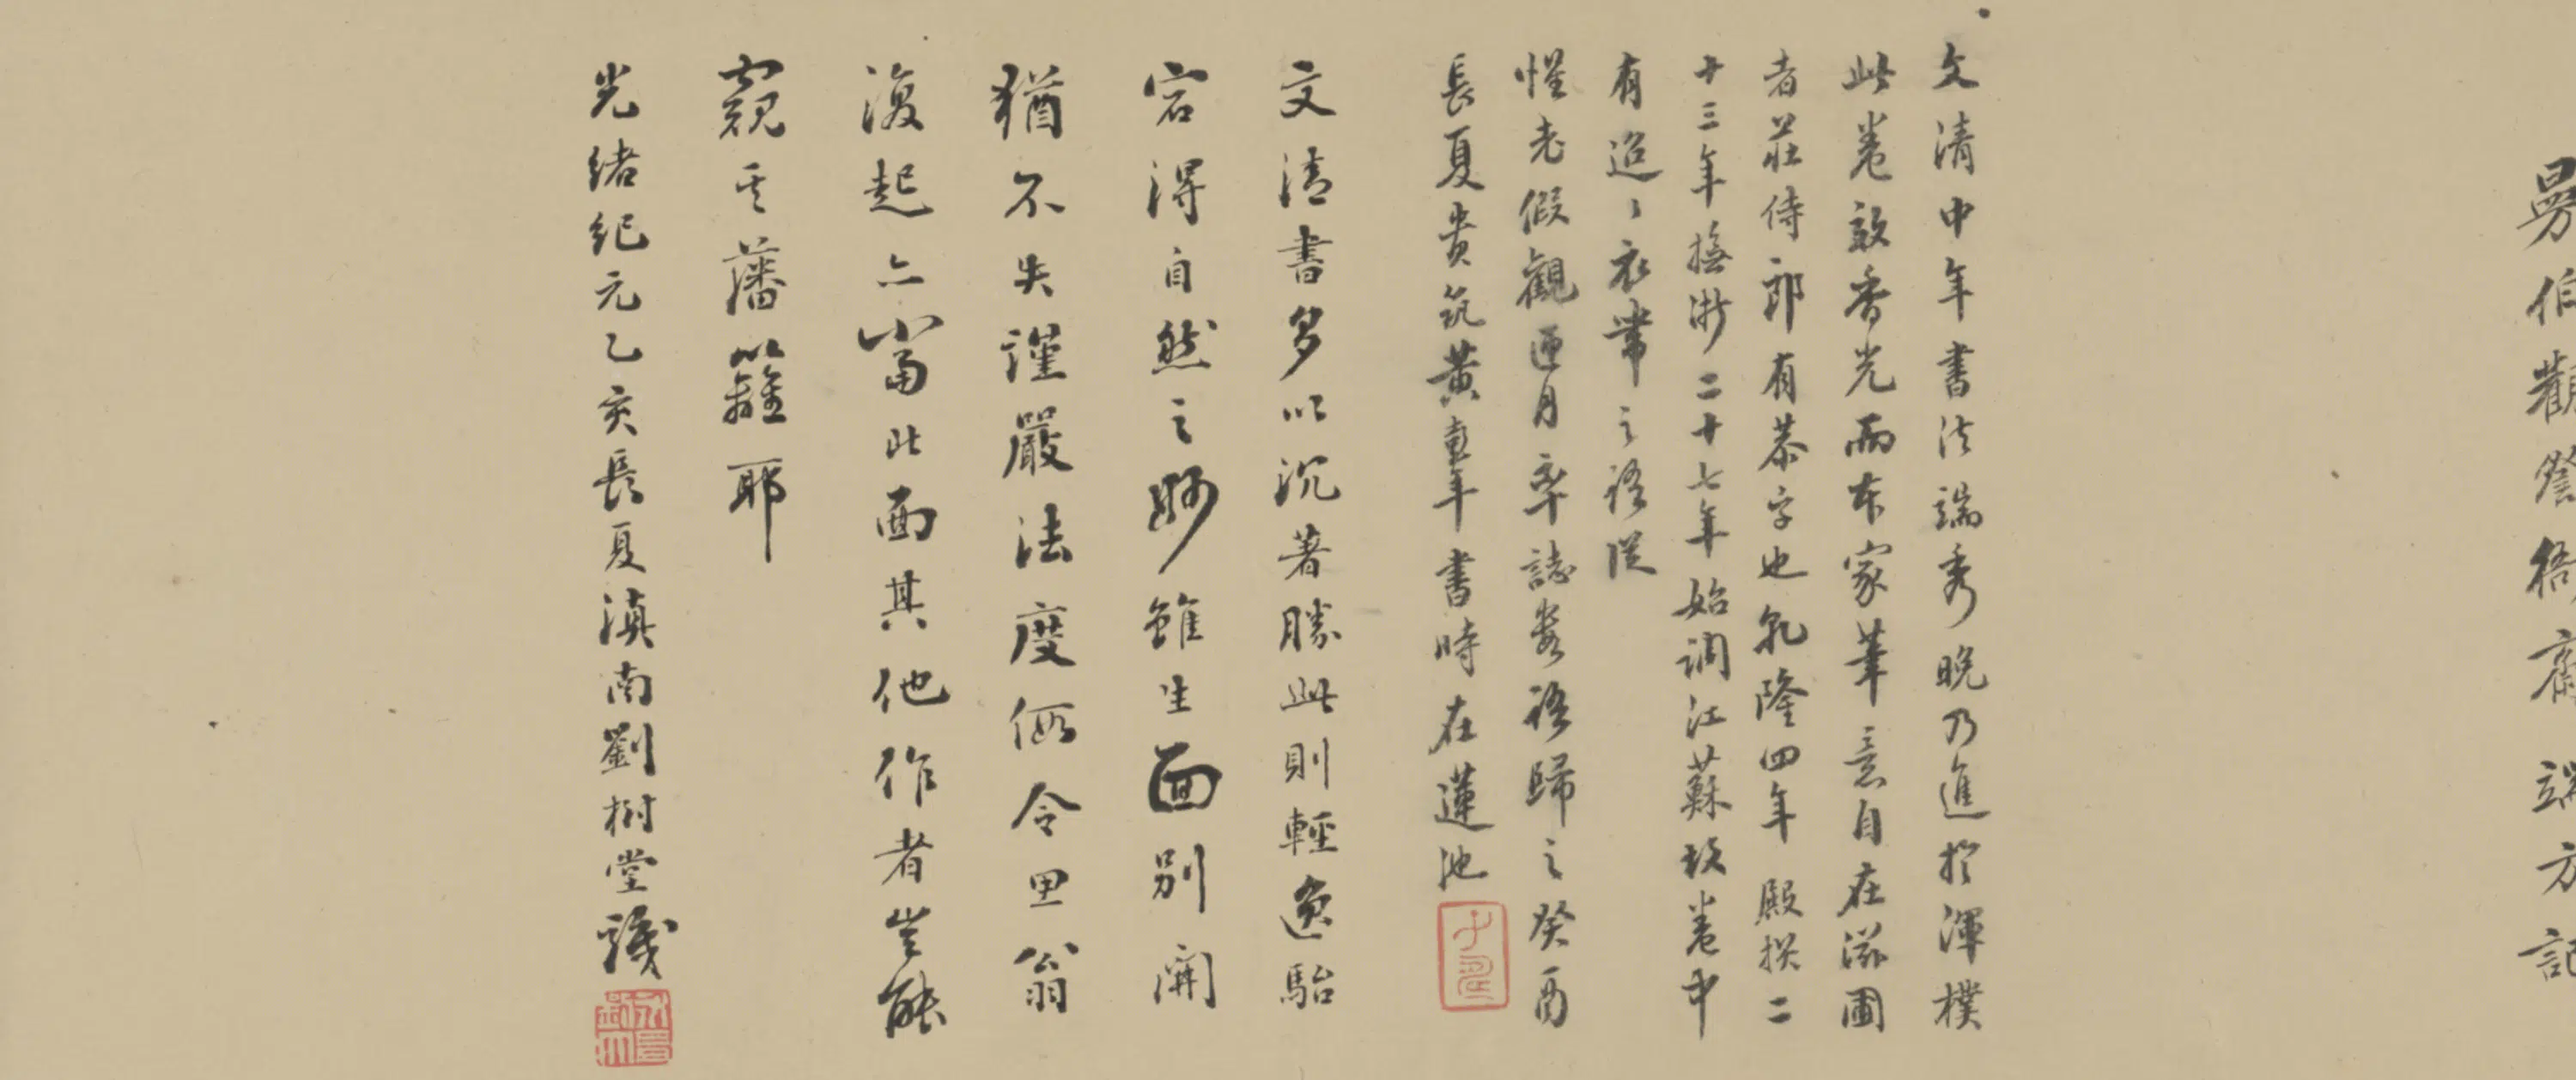 曼伯觀詧梧齋端方記
文清中年書法端秀晚乃進於渾樸
此卷敢香光而本家筆意自在滋圃
者莊侍郎有恭字也乾隆四年殿撰二
十三年撫浙二十七年始調江蘇故卷中
有迢〻衣帶之語從
惺老假觀匝月率誌數語歸之癸酉
長夏貴筑黃彭年書時在蓮池
文清書多以沉著勝此則輕逸駘
宕得自然之妙雖生面別開
猶不失謹嚴法度假令思翁
復起亦當北面其他作者豈能
窺其藩籬耶
光緒紀元乙亥長夏滇南劉樹堂識